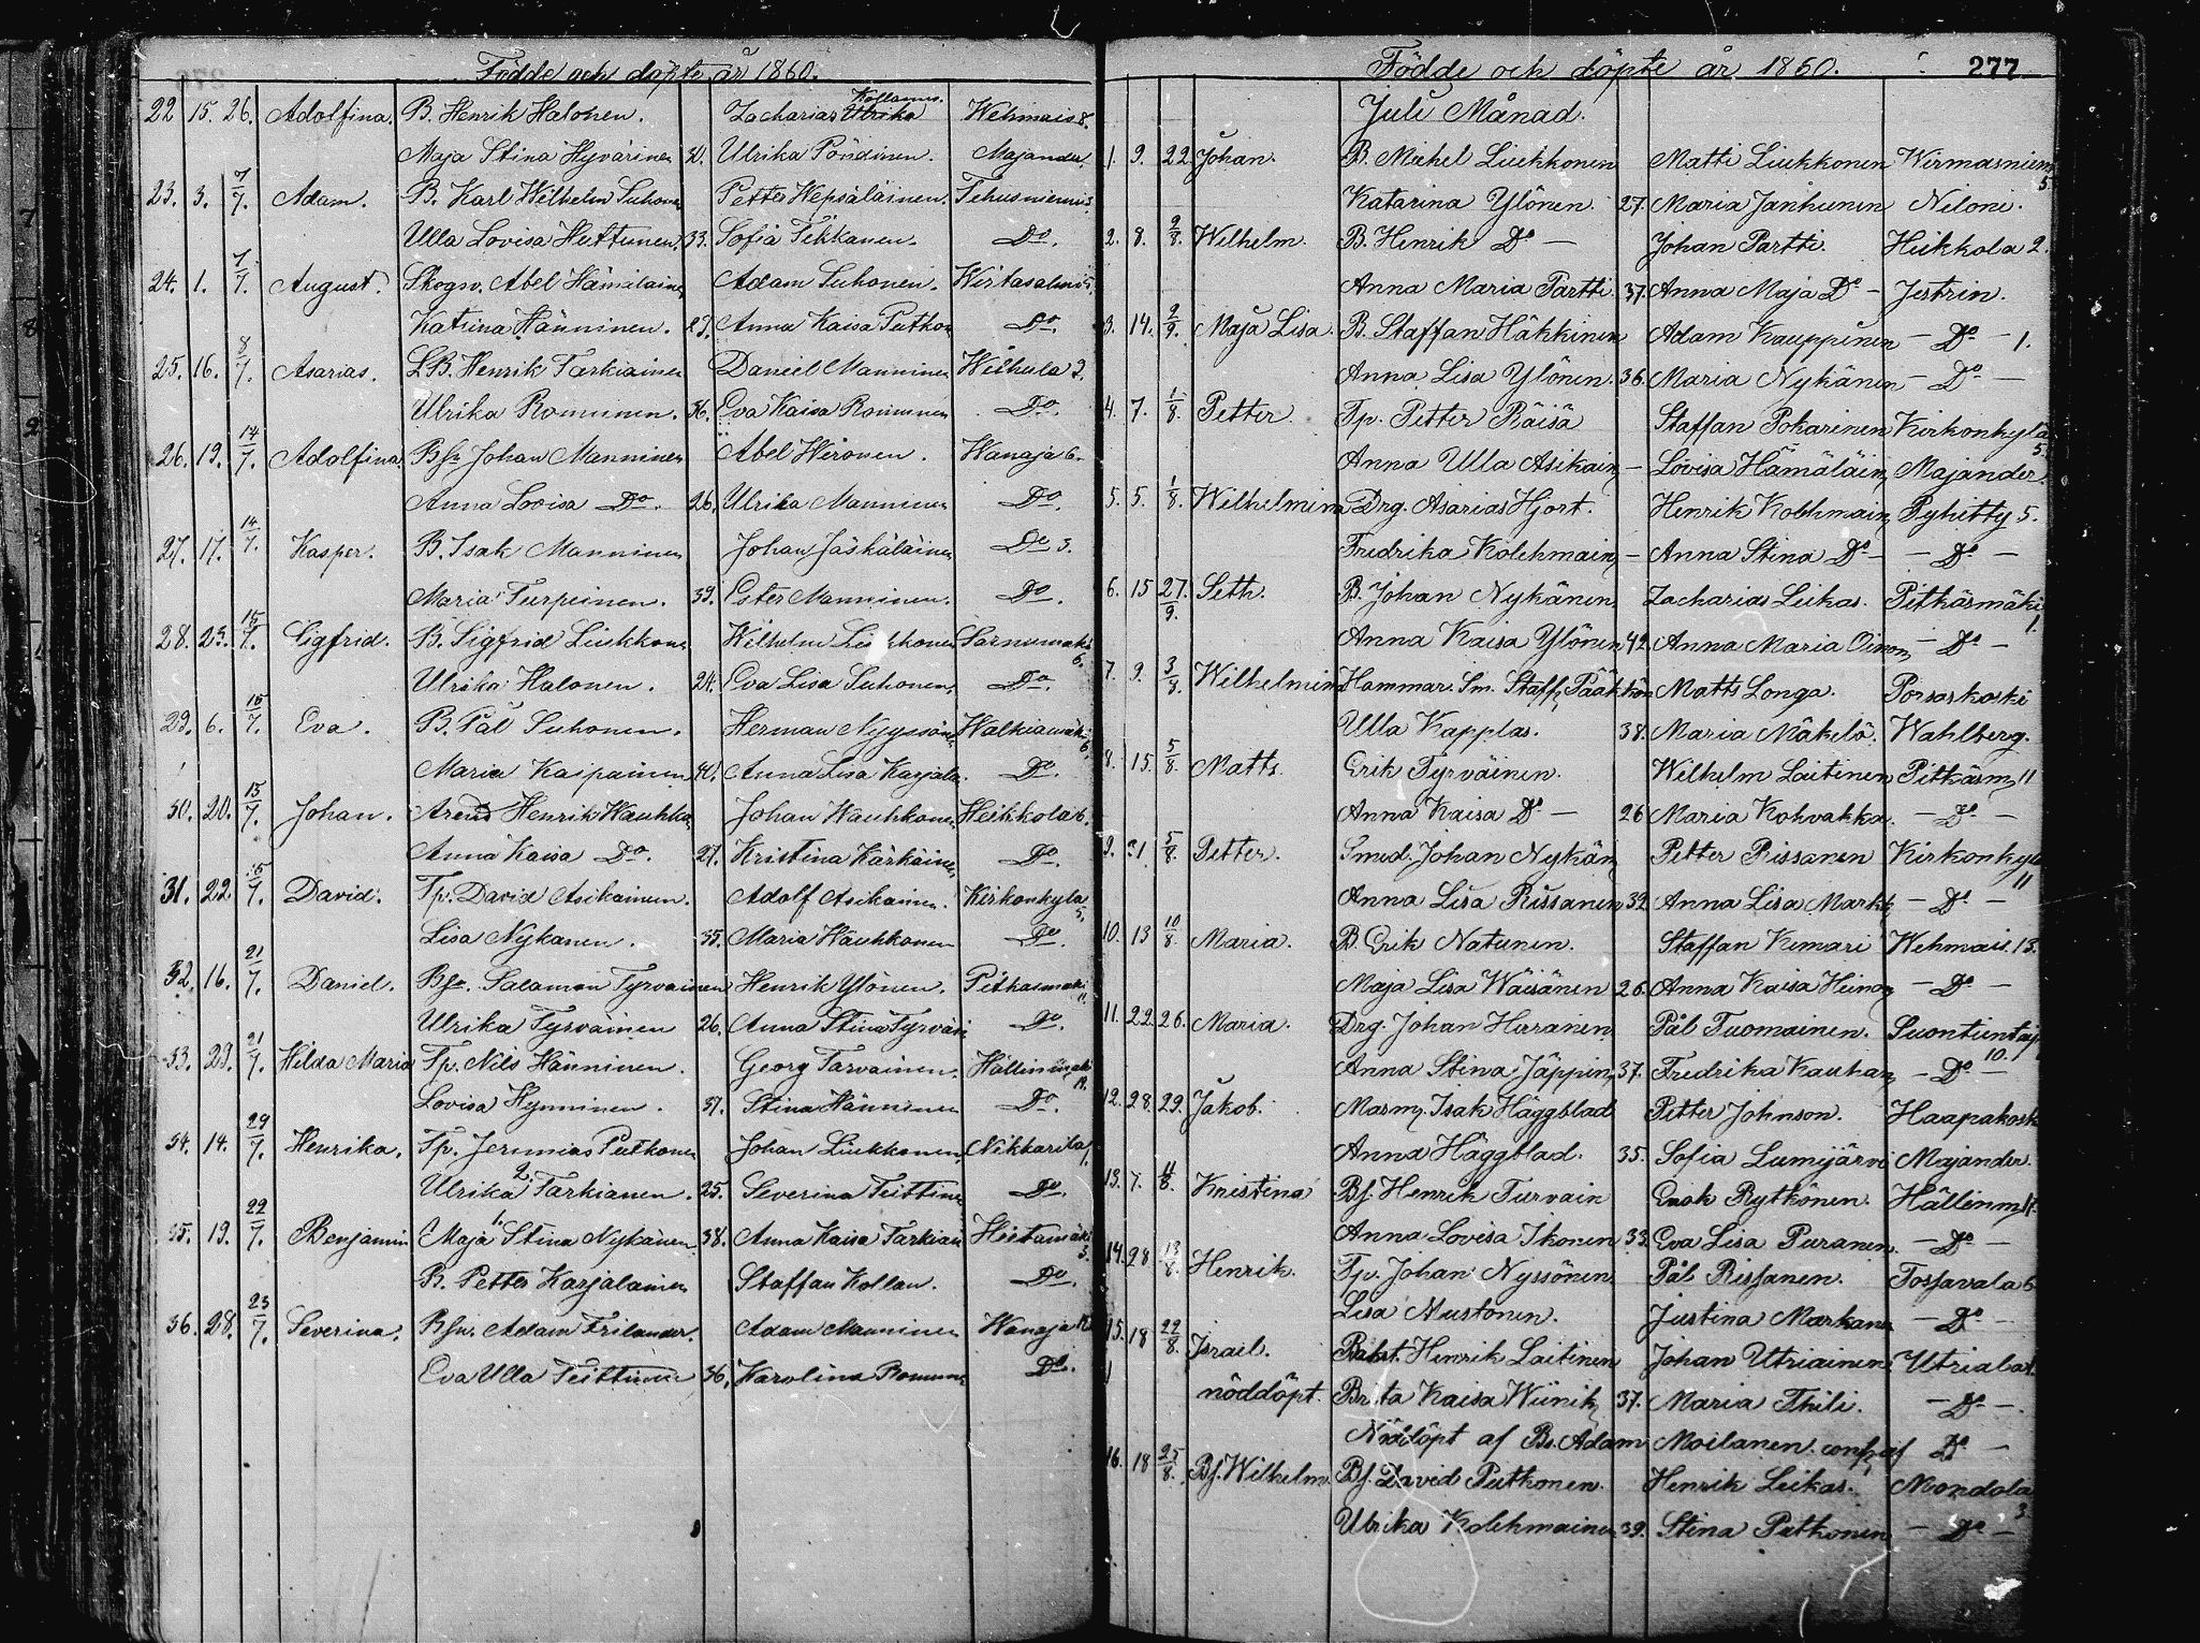 Födde och döpte år 1860.
22 15. 26. Adolfina. B. Henrik Halonen. Zacharias Ulrika Wehmais 8.
Maja Stina Hyvärinen 30. Ulrika Pöndinen. Majander.
23. 3. 7/7. Adam. B. Karl Wilhelm Suhonen Petter Wepsäläinen. Tehusniemi 3.
Ulla Lovisa Huttunen. 33. Sofia Tikkanen. Do.
24. 1. 7/7. August. Skogsv. Abel Hämäläinen Adam Suhonen. Wirtasalmi 5.
Katrina Hänninen. 29. Anna Kaisa Putkon Do.
25. 16. 8/7. Asarias. LB. Henrik Tarkiainen Daniel Manninen Weihula 2.
Ulrika Romunen. 36. Eva Kaisa Romunen Do.
26. 19. 14/7. Adolfina. Bfr Johan Manninen Abel Hironen. Wanaja 6.
Anna Lovisa Do. 26. Ulrika Manninen Do.
27. 17. 14/7. Kasper. B. Isak Manninen Johan Jäskäläinen Do 3.
Maria Turpeinen. 39. Ester Manninen. Do.
28. 23. 15/7. Sigfrid. B. Sigfrid Liukkonen Wilhelm Liukkonen Sarnumäki 6.
Ulrika Halonen. 24. Eva Lisa Suhonen. Do.
29. 6. 15/7. Eva. B. Pål Suhonen. Herman Nyyssönen Walkiamäki 6.
Maria Kaipainen 40. Anna Lisa Karjala. Do.
30. 20. 15/7. Johan. Arend Henrik Wauhko. Johan Wauhkonen Heikkola 6.
Anna Kaisa Do. 27. Kristina Kärkäinen Do.
31. 22 15/7. David. Tp. David Asikainen. Adolf Asikainen. Kirkonkyla 5.
Lisa Nykanen. 35. Maria Wauhkonen Do.
32. 16. 21/7. Daniel. Bfr. Salamon Tyrvainen Henrik Ylönen. Pitkasmaki 11.
Ulrika Tyrväinen 26. Anna Stina Tyrväi Do.
33. 29. 21/7. Hilda Maria Tp. Nils Hänninen. Georg Tarvainen. Hällinmäki 19.
Lovisa Hynninen. 37. Stina Hänninen Do.
34. 14. 29/7. Henrika. Tp. Jeremias Putkonen Johan Liukkonen. Nikkarila 1.
Ulrika 2. Tarkianen. 25. Severina Teittinen Do.
35. 19. 22/7. Benjamin Maja 1. Stina Nykänen. 38. Anna Kaisa Tarkiain Hietamäki 3.
B. Petter Karjalainen Staffan Kollan. Do.
36. 28. 23/7. Severina. Bfn. Adam Frilander. Adam Manninen Wanaja 12
Eva Ulla Teittinen 36. Karolina Romunen Do.
Födde och döpte år 1860. 277
Juli Månad.
1. 9. 22 Johan. B. Mikel Liukkonen Matti Liukkonen Wirmasniemi 5.
Katarina Ylönen. 27. Maria Janhunen Niloni.
2. 8. 9/8. Wilhelm. B. Henrik Do — Johan Partti. Heikkola 2.
Anna Maria Partti. 37. Anna Maja Do — Jestrin.
3. 14. 9/9. Maja Lisa. B. Staffan Häkkinen Adam Kauppinen — Do — 1.
Anna Lisa Ylönen. 36. Maria Nykänen — Do —
4. 7. 1/8. Petter. Tp. Petter Räisä Staffan Pokarinen Kirkonkyla 5.
Anna Ulla Asikain — Lovisa Hämäläin Majander.
5. 5. 1/8. Wilhelmina Drg. Asarias Hjort. Henrik Kolehmain Pyhitty 5.
Fredrika Kolehmain — Anna Stina Do — — Do —
6. 15 27./9. Seth. B. Johan Nykänen. Zacharias Leikas. Pitkäsmäki 1.
Anna Kaisa Ylönen 42. Anna Maria Oinon — Do —
7. 9. 3/8. Wilhelmina Hammar. Sm. Staff. Pääkkön Matts Longa. Porsaskoski
Ulla Kapplas. 38. Maria Mäkelä. Wahlberg.
8. 15. 5/8. Matts. Erik Tyrväinen. Wilhelm Laitinen Pitkäsm 11
Anna Kaisa Do — 26 Maria Kohvakka. — Do —
9. 21. 5/8. Petter. Smed. Johan Nykän Petter Rissanen Kirkonkyla 11
Anna Lisa Rissanen 32. Anna Lisa Markk — Do —
10. 13 10/8. Maria. B. Erik Natunen. Staffan Kemari Wehmais. 13.
Maja Lisa Wäisänen 26. Anna Kaisa Heinon — Do —
11. 22. 26. Maria. Drg. Johan Hirranen. Pål Tuomainen. Suontientaip 10.
Anna Stina Jäppin 37. Fredrika Kauhan — Do —
12. 28. 29. Jakob. Masm. Isak Häggblad Petter Johnson. Haapakoski
Anna Häggblad. 35. Sofia Lumijärvi Majander.
13. 7. 11/8. Kristina Bf. Henrik Turvain Enok Rytkönen. Hällinm 11.
Anna Lovisa Ikonen 33. Eva Lisa Puranen. — Do —
14. 28 13/8. Henrik. Tp. Johan Nyssönen. Pål Rissanen. Tossavala 6
Lisa Mustonen. Justina Markanen — Do —
15. 18 22/8. Israel. Henrik Laitinen Johan Utriainen Utriala 1.
nöddöpt. Brita Kaisa Wiinik 37. Maria Thili. — Do —.
Nöddöpt af Bs. Adam Moilanen. conf. af Do —
16. 18 25/8. Bf. Wilhelm Bf. David Putkonen. Henrik Leikas. Mondola 3
Ulrika Kolehmainen 39. Stina Putkonen — Do —